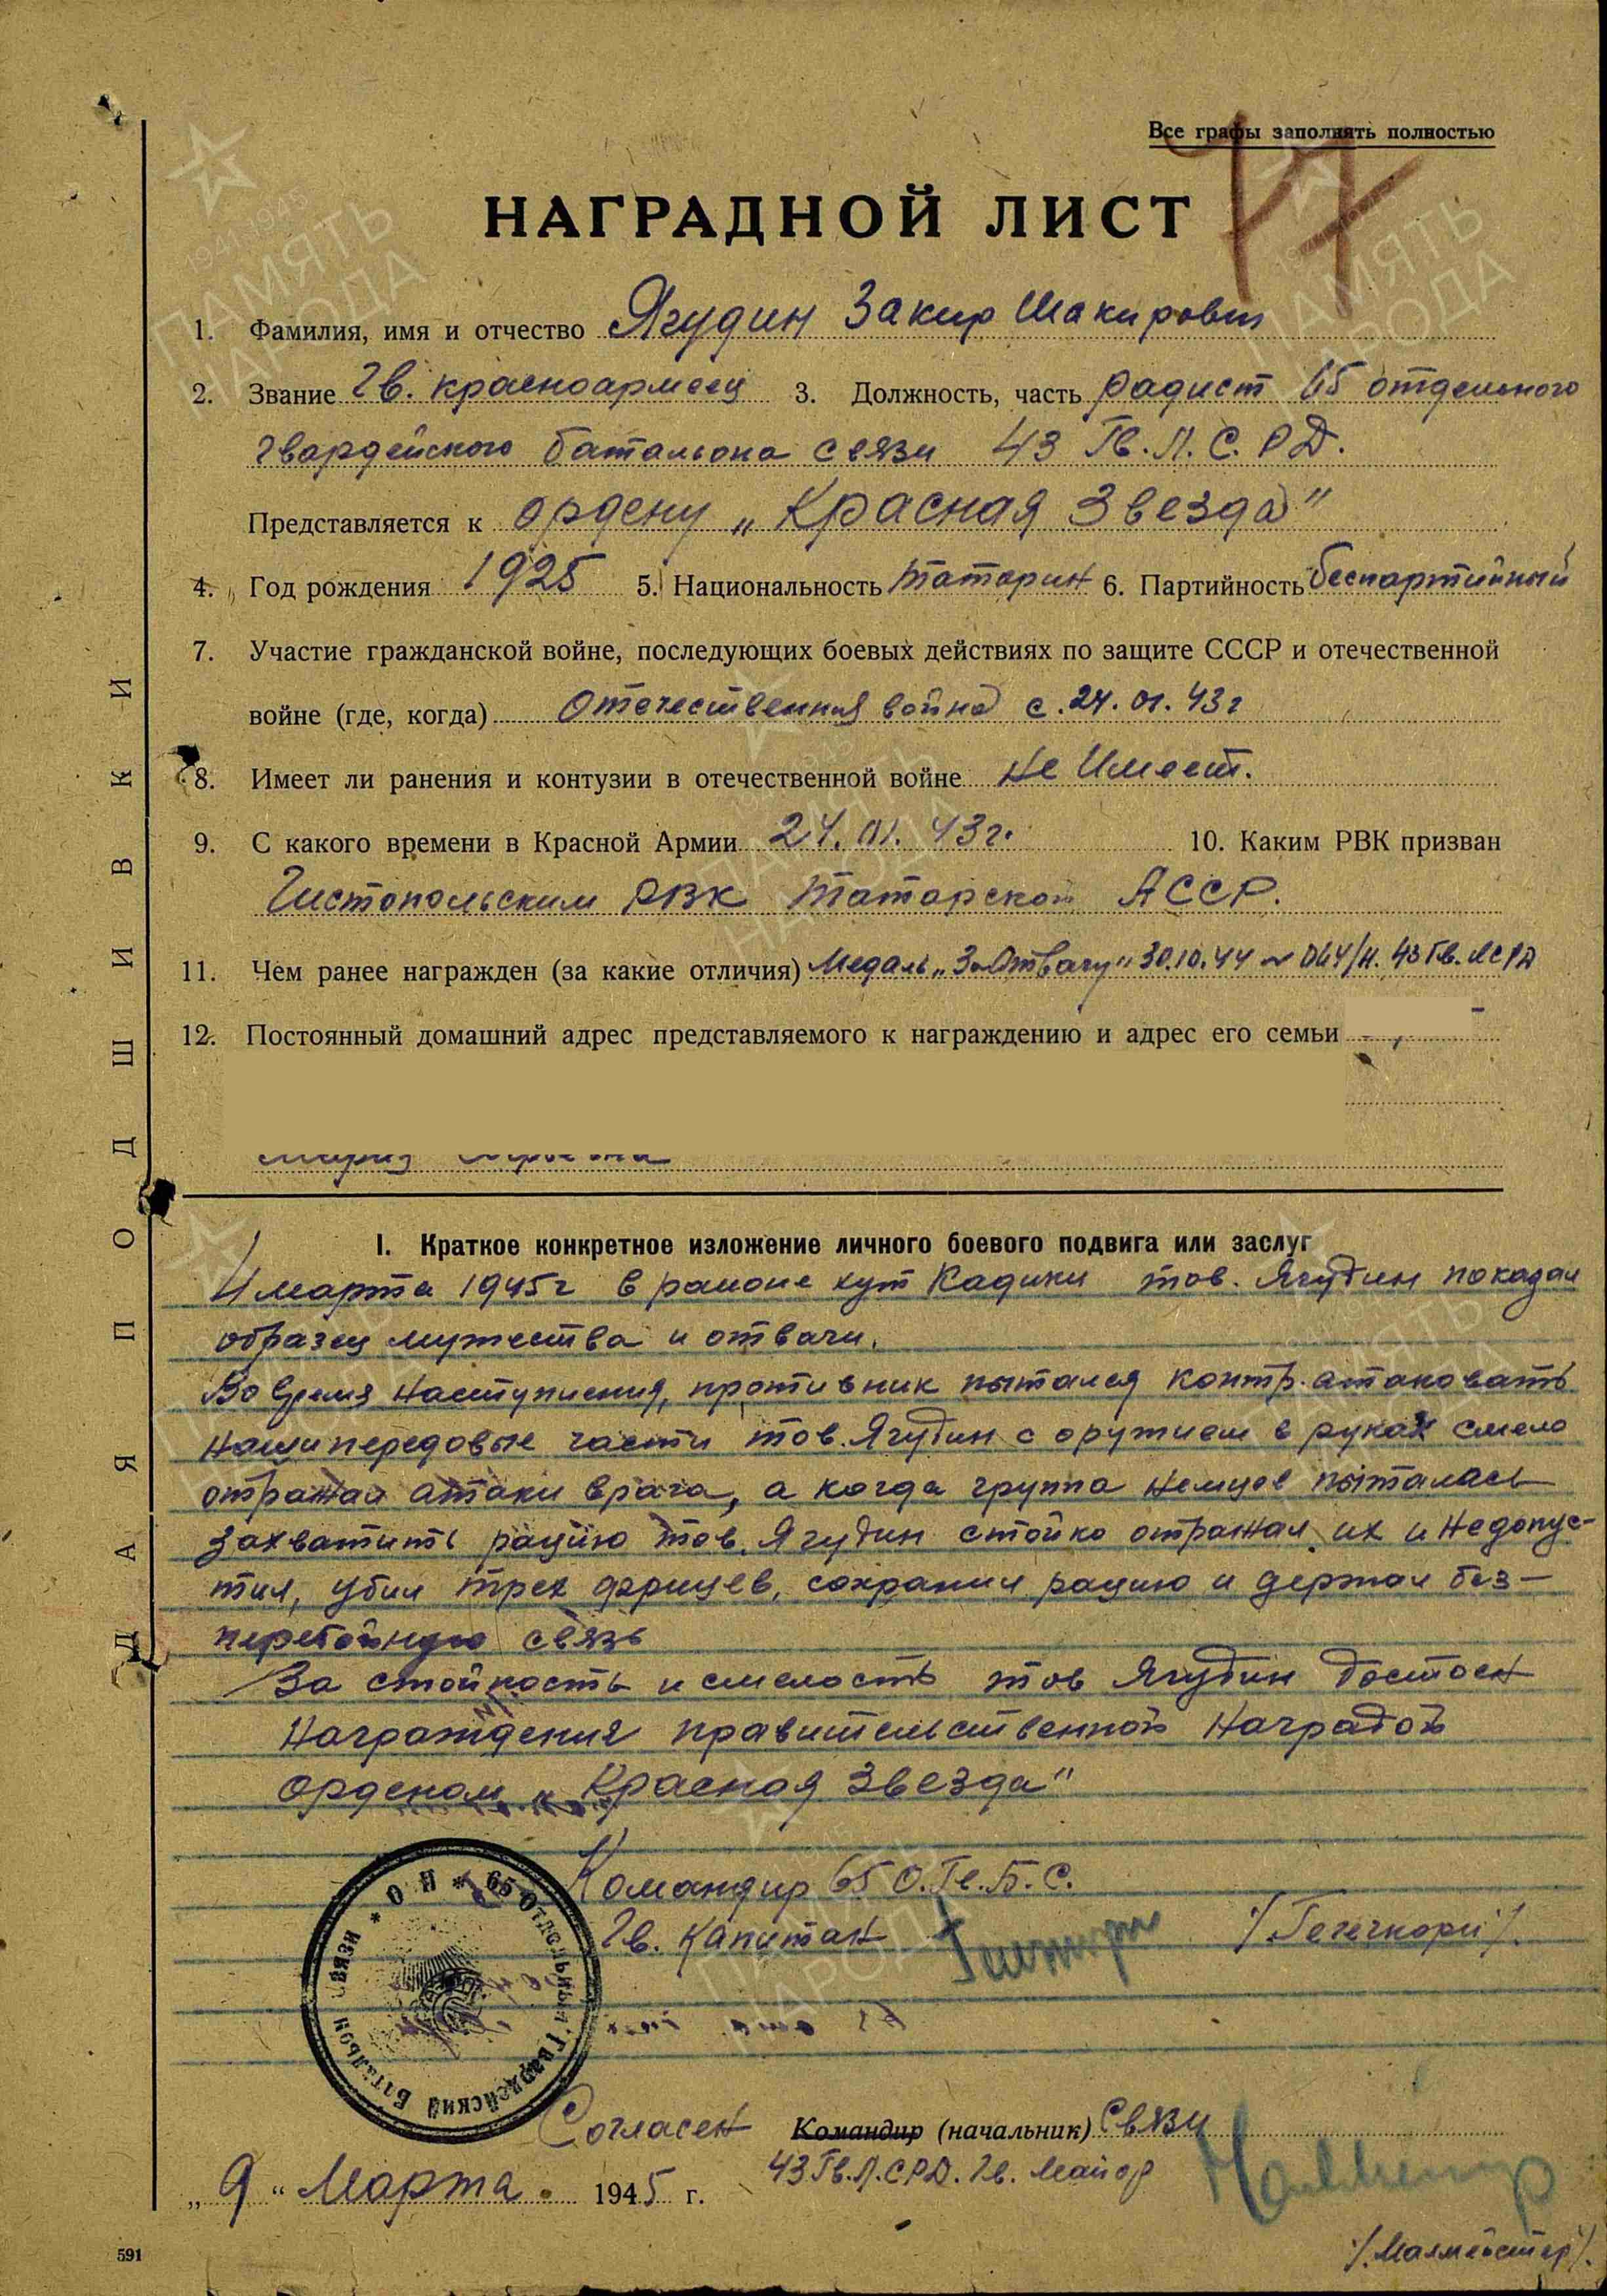 Все графы заполнять полностью
НАГРАДНОЙ ЛИСТ
1. Фамилия, имя и отчество Ягудин Закир Шакирович
2. Звание Гв. красноармеец 3. Должность, часть радист 65 отдельного
гвардейского батальона связи 43 Гв. Л. С. Р Д.
Представляется к ордену „Красная Звезда"
4. Год рождения 1925 5. Национальность татарин 6. Партийность беспартийный
7. Участие гражданской войне, последующих боевых действиях по защите СССР и отечественной
войне (где, когда) Отечественная война с. 24. 01. 43г
8. Имеет ли ранения и контузии в отечественной войне не Имеет.
9. С какого времени в Красной Армии 24. 01. 43г. 10. Каким РВК призван
Чистопольским РВК Татарской АССР.
11. Чем ранее награжден (за какие отличия) Медаль „За Отвагу" 30.10.44 064/н. 43 Гв. ЛСРД
12. Постоянный домашний адрес представляемого к награждению и адрес его семьи
I. Краткое конкретное изложение личного боевого подвига или заслуг
марта 1945г в районе хут Кадики тов. Ягудин показал
образец мужества и отваги.
Во время наступления, противник пытался контр. атаковать
наши передовые части тов. Ягудин с оружием в руках смело
отражал атаки врага, а когда группа немцев пыталась
захватить рацию тов. Ягудин стойко отражал их и недопус-
тил, убил трех фрицев, сохранил рацию и держал без-
перебойную связь
За стойкость и смелость тов Ягудин достоен
награждения правительственной наградой
орденом „Красная Звезда"
Командир 65 О. Гв. Б. С.
Гв. Капитан /Гегечкори/.
65 Отдельный Гвардейский Батальон связи * О Н *
Согласен Командир (начальник) Связи
43 Гв. Л. СРД. Гв. Майор
„ 9 " Марта 1945 г.
/Малмейстер/.
591
ДЛЯ ПОДШИВКИ
1941-1945
ПАМЯТЬ
НАРОДА